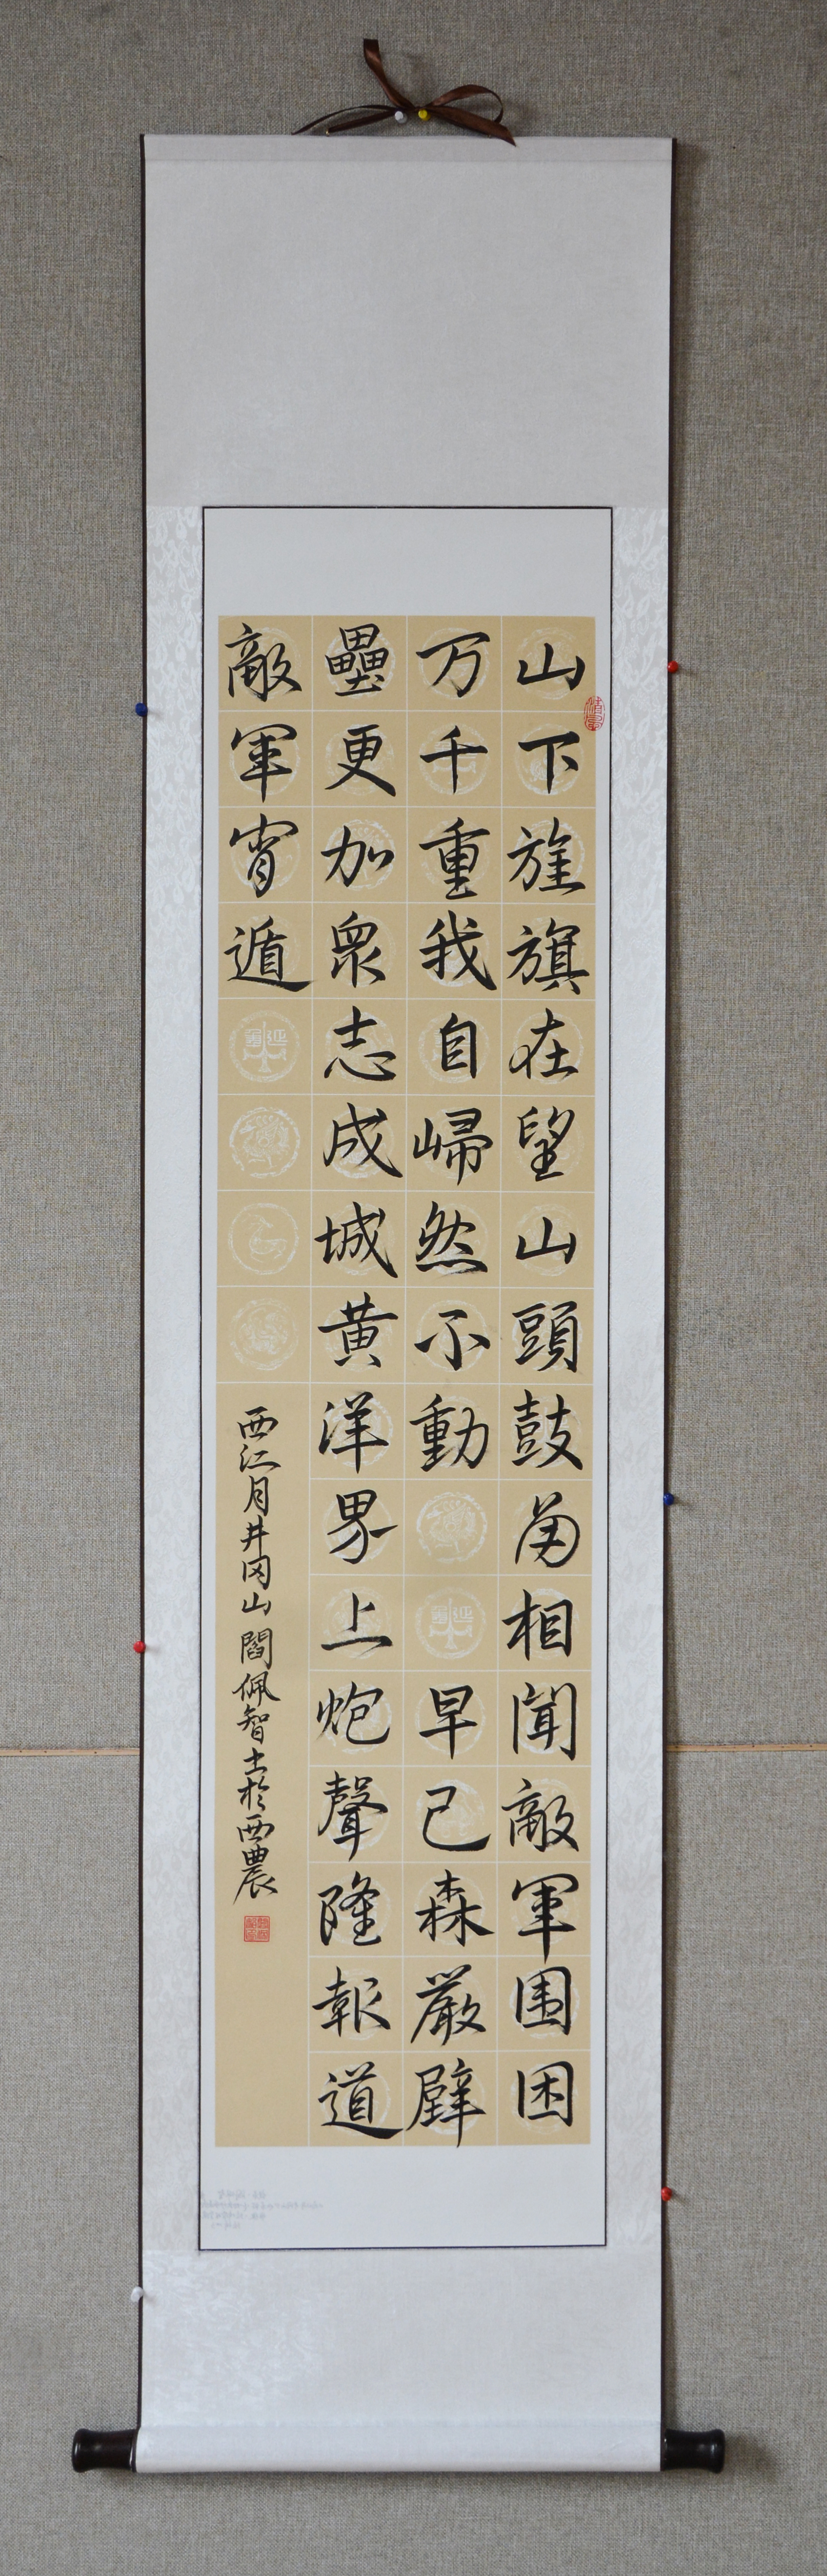 山下旌旗在望山頭鼓角相聞敵軍围困
万千重我自巋然不動早已森嚴壁
壘更加衆志成城黄洋界上炮聲隆報道
敵軍宵遁
西江月井冈山閻佩智書於西農